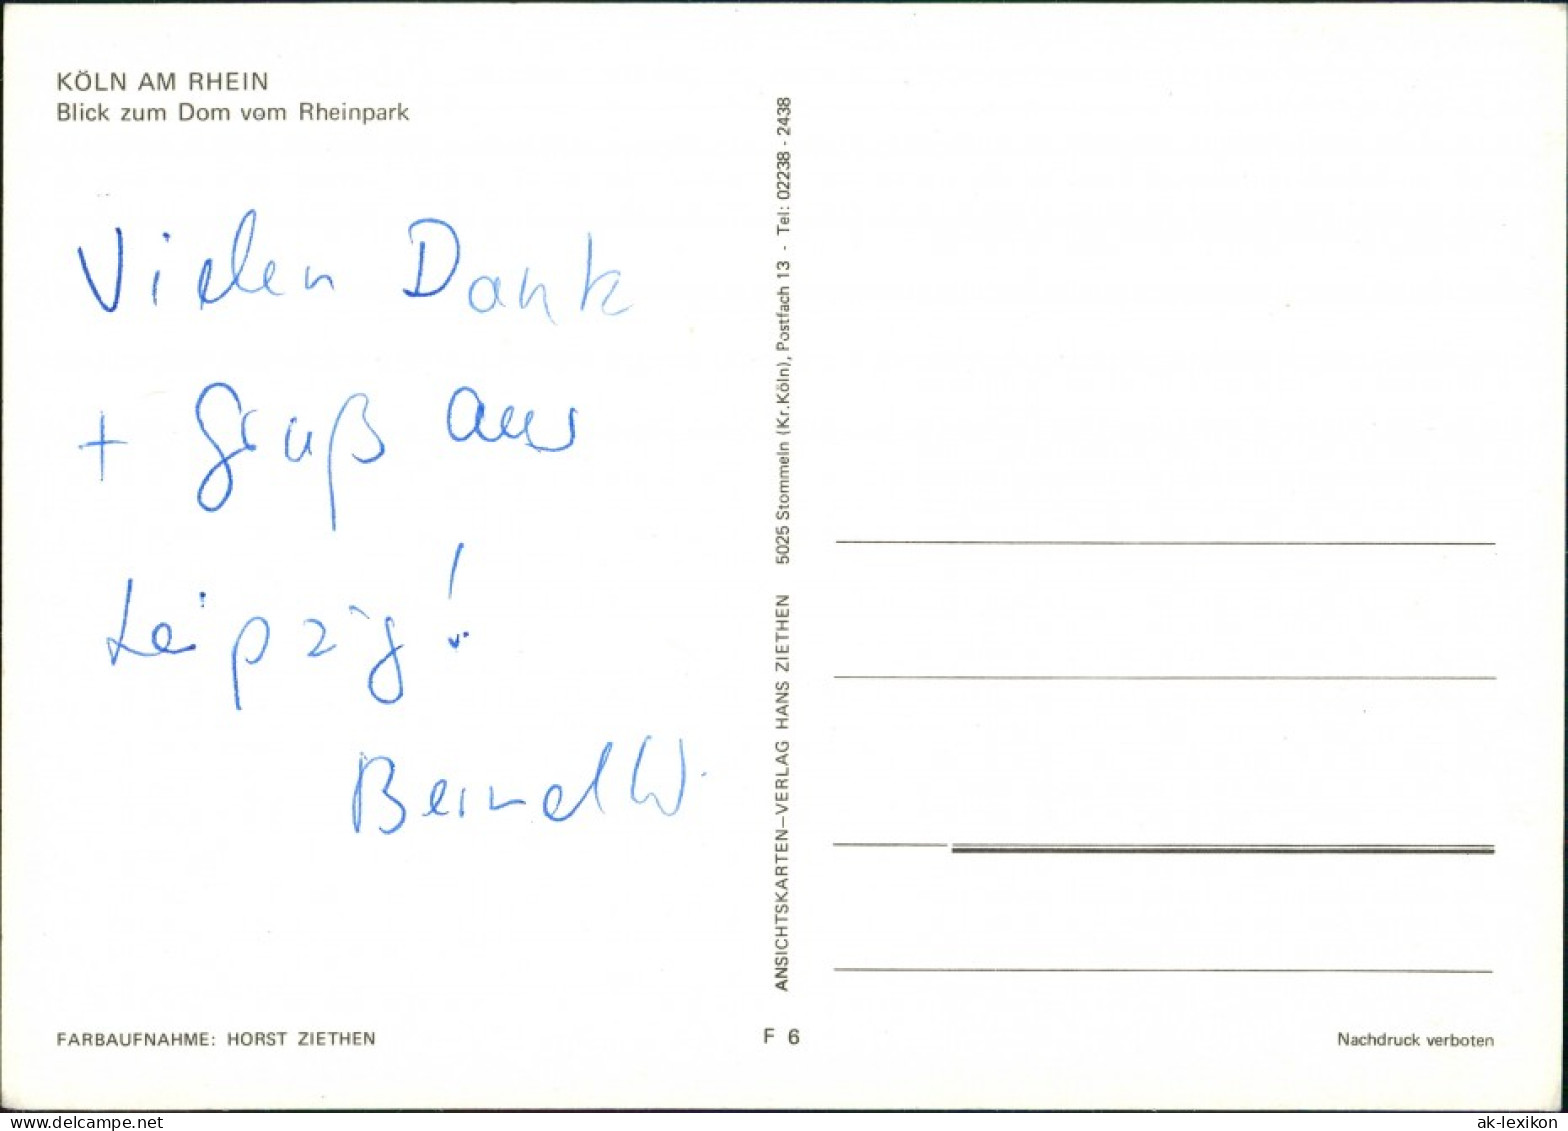 KÖLN AM RHEIN
Blick zum Dom vom Rheinpark
Vielen Dank
+ Gruß aus
Leipzig!
Bernd W.
ANSICHTSKARTEN–VERLAG HANS ZIETHEN 5025 Stommeln (Kr. Köln), Postfach 13 - Tel: 02238 - 2438
FARBAUFNAHME: HORST ZIETHEN
F 6
Nachdruck verboten
www.delcampe.net
ak-lexikon